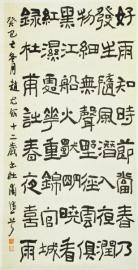 好雨知時節當春乃
發生隨風潛入夜潤
物細無聲野徑雲俱
黑江船火獨明曉看
紅濕處花重錦官城
録杜甫詩春夜喜雨
癸巳 月 趙 十二歲